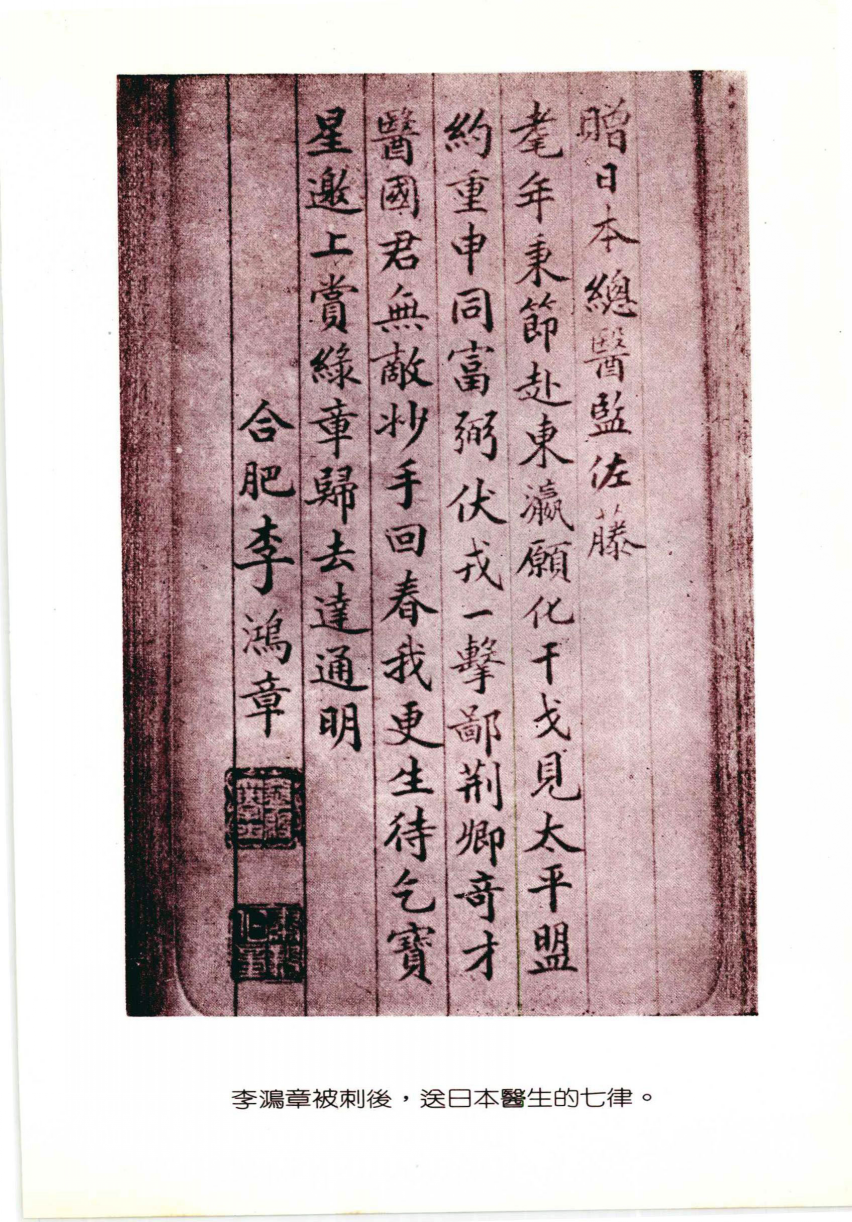 贈日本總醫監佐藤
耄年秉節赴東瀛願化干戈見太平盟
約重申同富弼伏戎一擊鄙荆卿奇才
醫國君無敵妙手回春我更生待乞寶
星邀上賞綠章歸去達通明
合肥李鴻章
李鴻章被刺後，送日本醫生的七律。